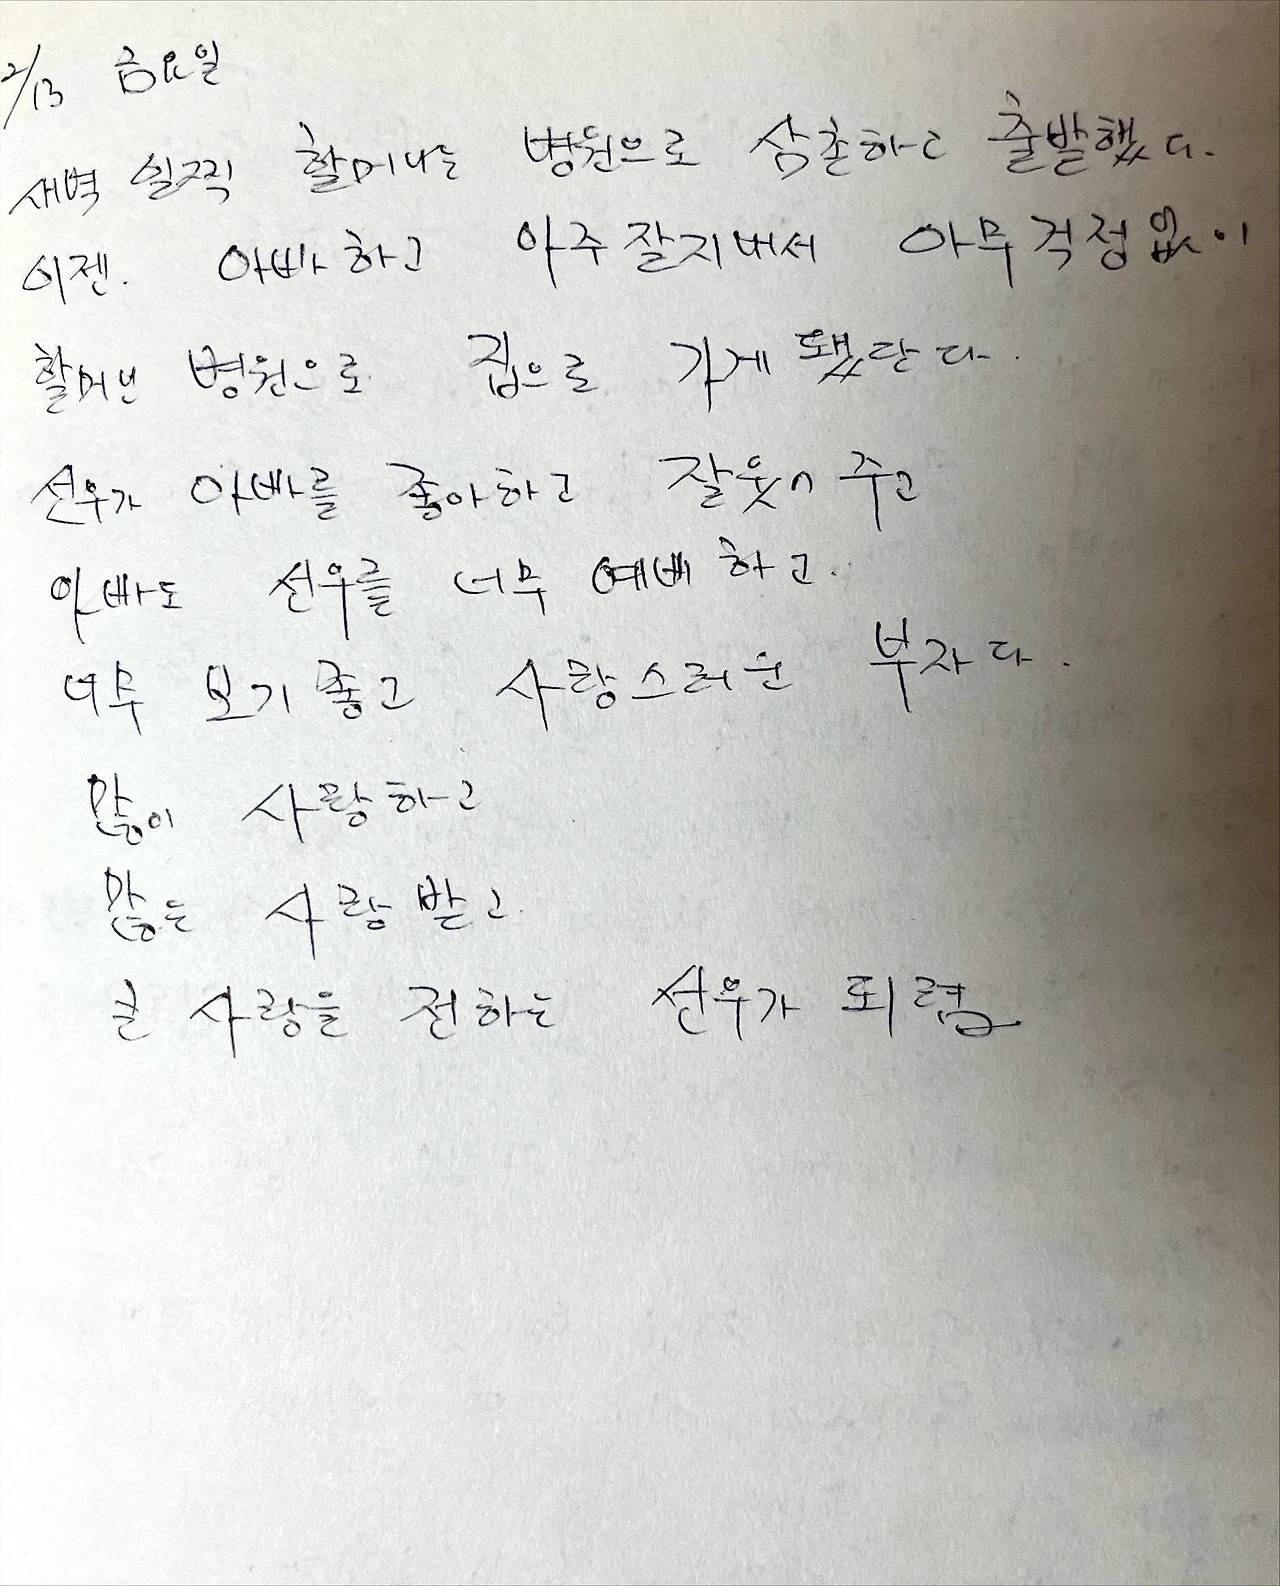 2/13 금요일
새벽 일찍 할머니는 병원으로 삼촌하고 출발했다.
이젠. 아빠하고 아주 잘지내서 아무 걱정없이
할머닌 병원으로 집으로 가게 됐단다.
선우가 아빠를 좋아하고 잘웃어 주고
아빠도 선우를 너무 예뻐하고.
너무 보기 좋고 사랑스러운 부자다.
많이 사랑하고
많은 사랑받고
큰 사랑을 전하는 선우가 되렴